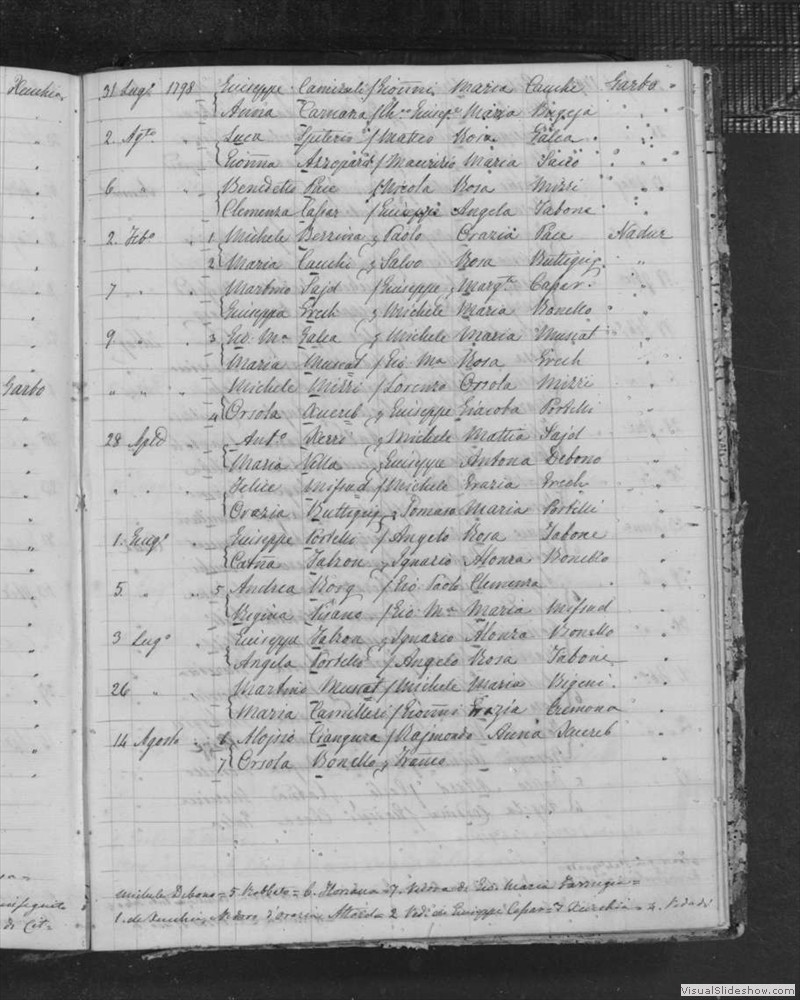 Xeuchia
31 Lugo 1798 Giuseppe Camizuli / Gioňni Maria Cauchi Garbo
Anna /
2. Agto Luca Spiteri / Matteo Rosa Galea
Gionna Azzopardi / Maurizio Maria
6 Benedetto Pace / Nicola Rosa Mizzi
Clemenza Capar / Giuseppe Angela Tabone
2. Febo 1 Michele Berrina y Paolo Grazia Pace Nadur
2 Maria Cauchi y Salvo Rosa Buttigieg
7 Martino Said / Giuseppe Margta Capar
Giuseppa Grech y Michele Maria Bonello
9 3 Gio. Ma Galea y Michele Maria Muscat
Maria Muscat / Gio Ma Rosa Grech
" " " Michele Mizzi / Lorenzo Orsola Mizzi
Garbo
4 Orsola Xuereb y Giuseppe Giacoba Portelli
28 Aple Anto Xerri y Michele Mattia Said
Maria Vella y Giuseppe Antona Debono
Felice Mifsud / Michele Grazia Grech
Grazia Buttigieg y Tomaso Maria Portelli
1. Giugo Giuseppe Portelli / Angelo Rosa Tabone
Catña Falzon y Ignazio Alonza Bonello
5 5 Andrea Borg / Gio Paolo Clemenza
Regina Pisano / Gio Ma Maria Mifsud
3 Lugo Giuseppe Falzon y Ignazio Alonza Bonello
Angela Portelli / Angelo Rosa Tabone
26 " Martino Muscat / Michele Maria Bigeni
Maria Camilleri / Gioňni Grazia Cremona
14 Agosto 6 Alojsio Ciangura / Rajmondo Anna Xuereb
7 Orsola Bonello y Franco
Michele Debono = 5 = 6. Floriana = 7. Vedova di Gio. Maria Farrugia =
1. de Xeuchia, Vedovo Grazia Attard = 2 Vedo di Giuseppe Capar = 3 Xeuchia = 4.
VisualSlideshow.com